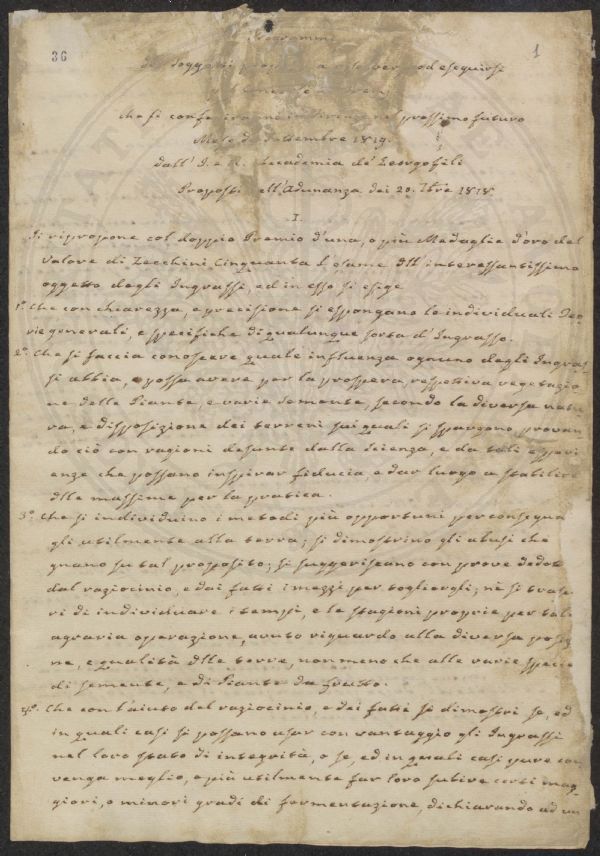 36
1
Programmi
dei soggetti
che si conferiranno nel prossimo futuro
Mese di Settembre 1819.
dall' I. e R. Accademia de' Georgofili
Proposti nell'Adunanza dei 20. 7bre 1818
I.
Si ripropone col doppio Premio d'una, o più Medaglie d'oro del
valore di Zecchini Cinquanta l'esame dll' interessantissimo
oggetto degli Ingrassi, ed in esso si esige
1.o Che con chiarezza, e precisione si espongano le individuali Teo-
rie generali, e specifiche di qualunque sorta d'Ingrasso.
2.o Che si faccia conoscere quale influenza ognuno degli Ingras-
si abbia, o possa avere per la prospera, respettiva vegetazio-
ne delle Piante, e varie semente, secondo la diversa natu
ra, e disposizione dei terreni sui quali si spargono, provan
do ciò con ragioni desunte dalla scienza, e da tali esperi
enze che possano inspirar fiducia, e dar luogo a stabilire
dlle massime per la pratica.
3.o Che si individuino i metodi più opportuni per consegnar
gli utilmente alla terra; si dimostrino gli abusi che
gnano su tal proposito; si suggeriscano con prove dedotte
dal raziocinio, e dai fatti i mezzi per togliergli; nè si trascu
ri di individuare i tempi, e le stagioni proprie per tale
agraria operazione, avuto riguardo alla diversa posizio
ne, e qualità dlle terre, non meno che alle varie specie
di semente, e di Piante da frutto.
4.o Che con l'aiuto del raziocinio, e dai fatti si dimostri se, ed
in quali casi si possano usar con vantaggio gli Ingrassi
nel loro stato di integrità, o se, ed in quali casi pure con
venga meglio, o più utilmente far loro subire certi mag-
giori, o minori gradi di fermentazione, dichiarando ad un